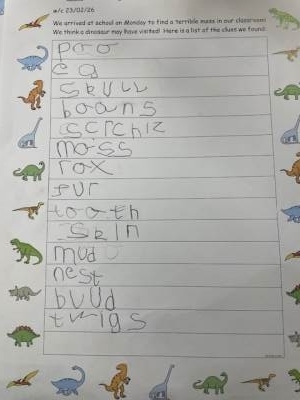 w/c 23/02/26
We arrived at school on Monday to find a terrible mess in our classroom!
We think a dinosaur may have visited! Here is a list of the clues we found:
poo
eg
skull
boans
scrchiz
moss
rox
fur
tooth
skin
mud
nest
buud
twigs